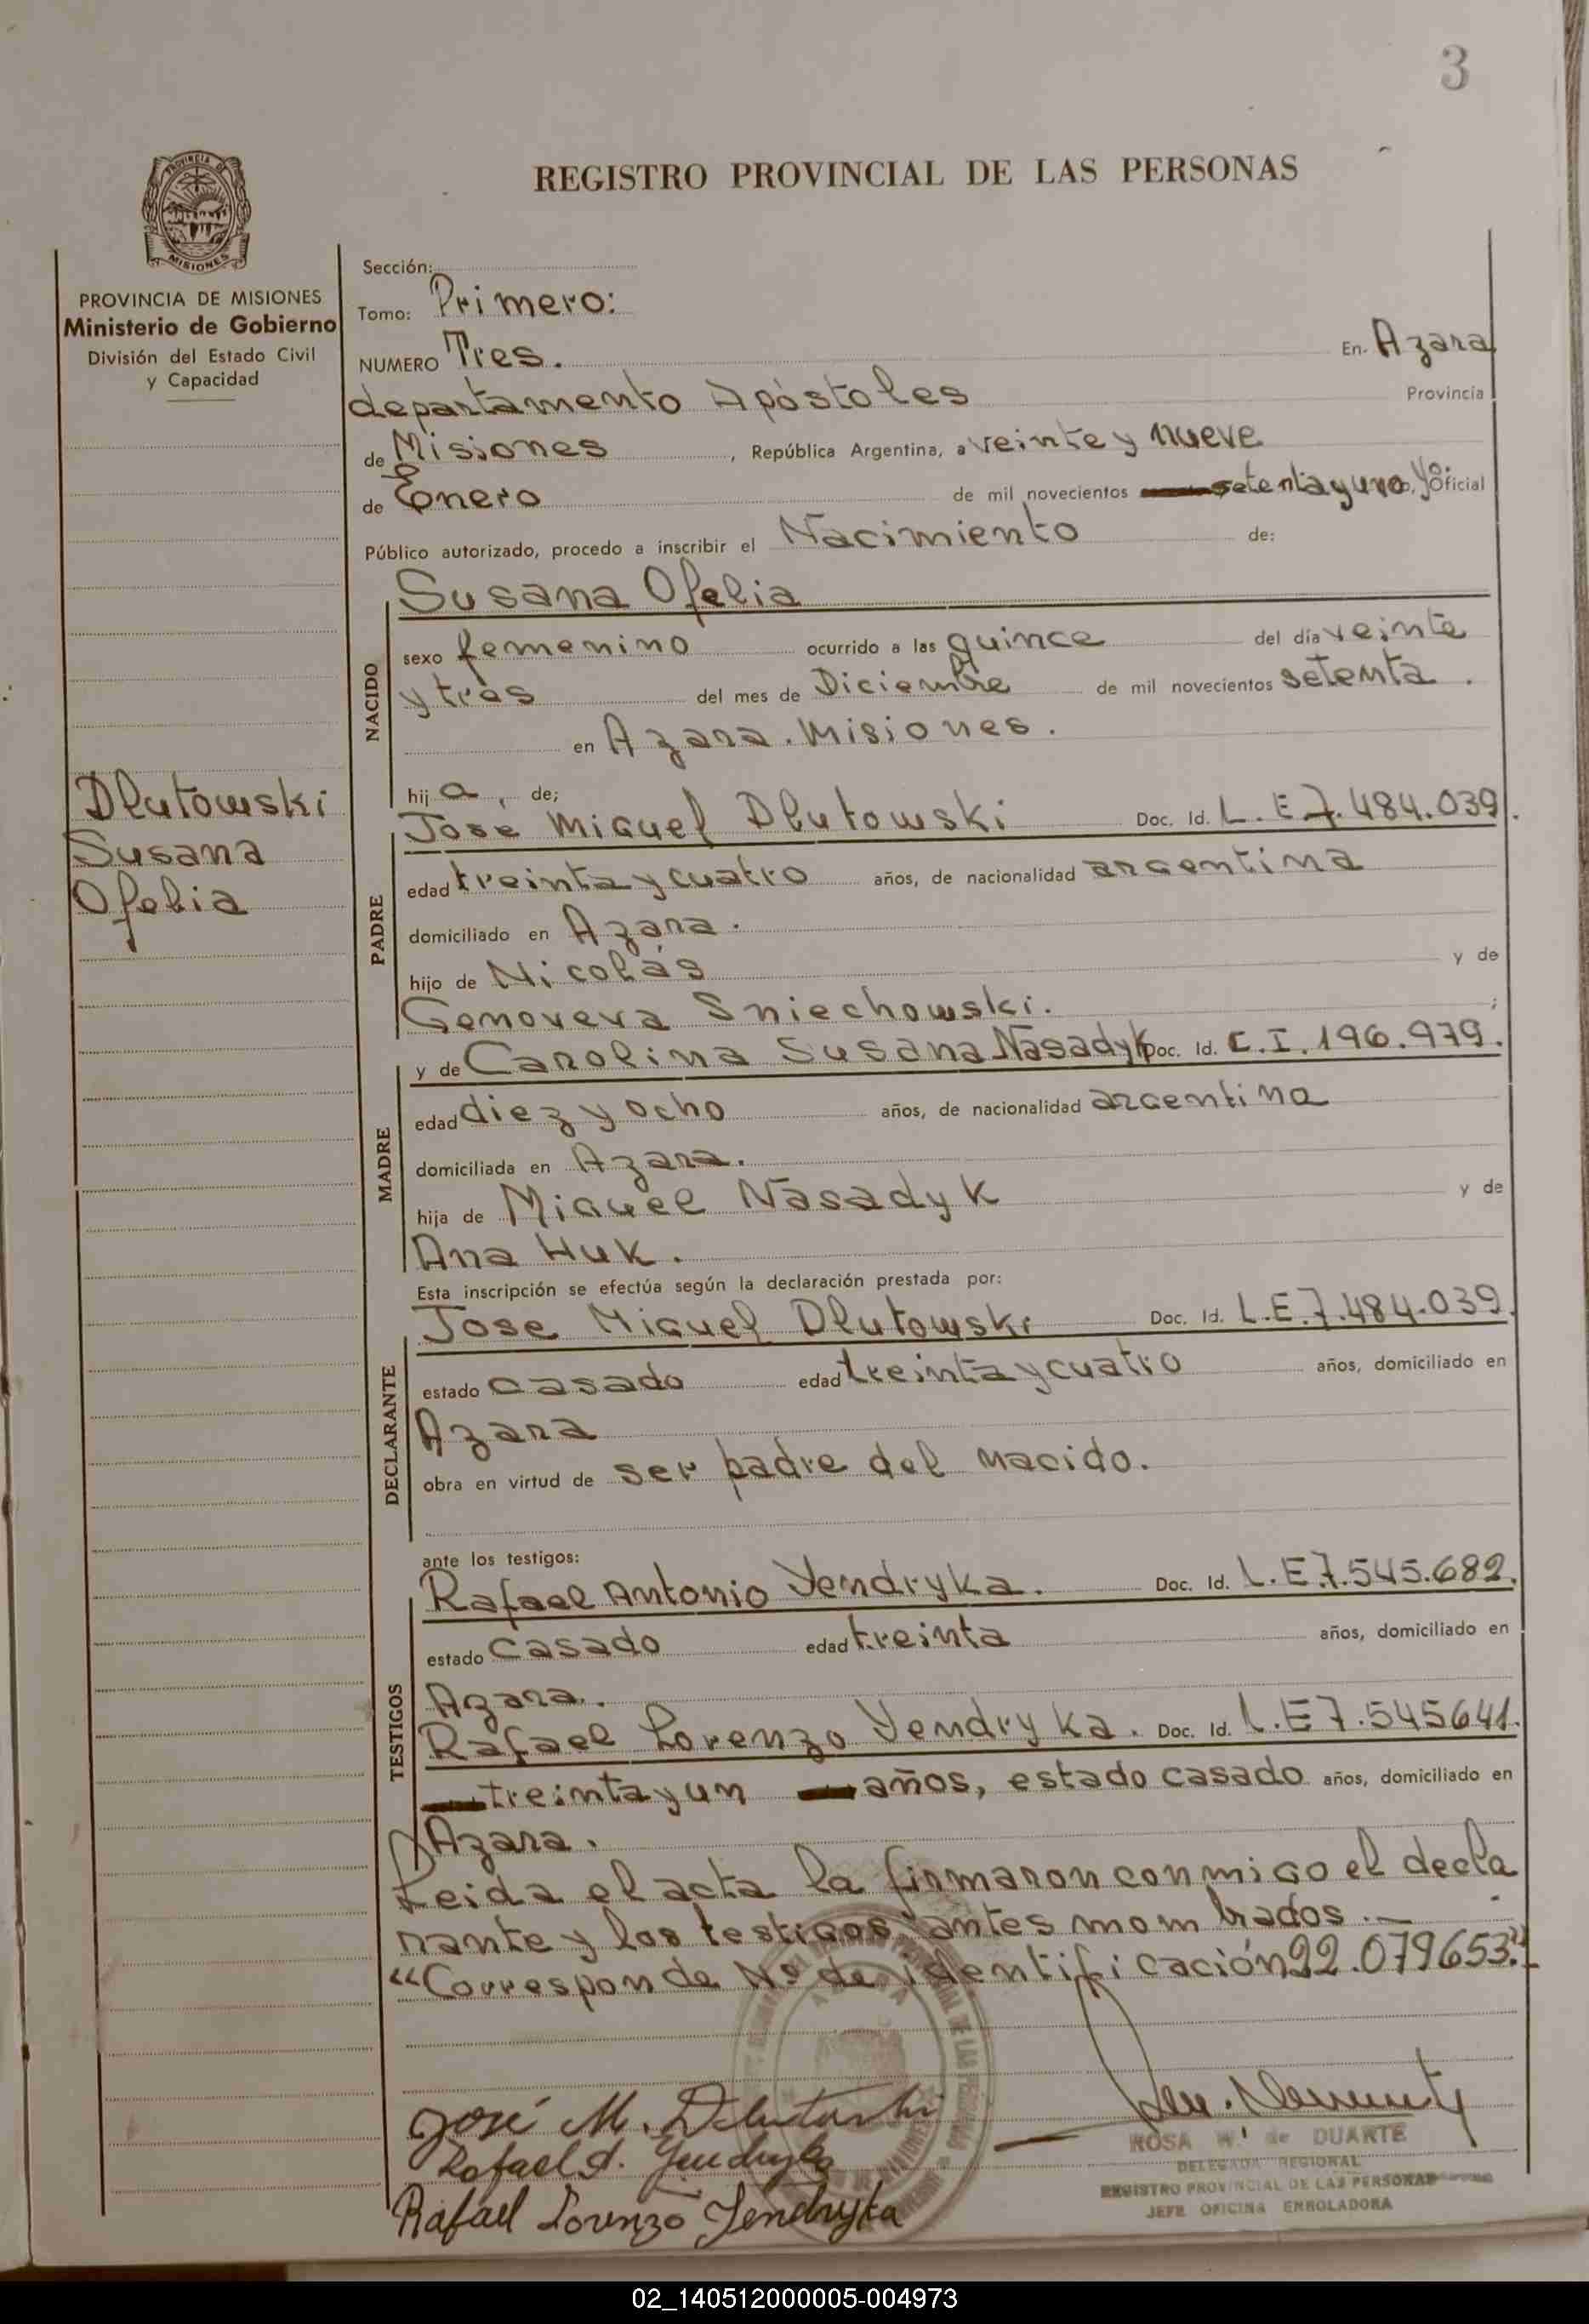 3
REGISTRO PROVINCIAL DE LAS PERSONAS
PROVINCIA DE
MISIONES
PROVINCIA DE MISIONES
Ministerio de Gobierno
División del Estado Civil
y Capacidad
Dlutowski
Susana
Ofelia
Sección:
Tomo: Primero:
NUMERO Tres. En Azara
departamento Apóstoles Provincia
de Misiones , República Argentina, a veinte y nueve
de Enero de mil novecientos setenta y uno. Yo. Oficial
Público autorizado, procedo a inscribir el Nacimiento de:
NACIDO
Susana Ofelia
sexo femenino ocurrido a las quince del día veinte
y tres del mes de Diciembre de mil novecientos setenta .
en Azara. Misiones .
hij a , de;
PADRE
Jose Miguel Dlutowski Doc. Id. L. E 7.484.039.
edad treinta y cuatro años, de nacionalidad argentina
domiciliado en Azara .
hijo de Nicolás y de
Genoveva Sniechowski. ;
MADRE
y de Carolina Susana Nasadyk Doc. Id. C.I. 196.979.
edad diez y ocho años, de nacionalidad argentina
domiciliada en Azara.
hija de Miguel Nasadyk y de
Ana Huk .
Esta inscripción se efectúa según la declaración prestada por:
DECLARANTE
Jose Miguel Dlutowski Doc. Id. L.E.7.484.039.
estado casado edad treinta y cuatro años, domiciliado en
Azara
obra en virtud de ser padre del nacido.
ante los testigos:
TESTIGOS
Rafael Antonio Yendryka. Doc. Id. L.E.7.545.682.
estado casado edad treinta años, domiciliado en
Azara.
Rafael Lorenzo Yendryka. Doc. Id. L.E 7.545641.
treinta y un años, estado casado años, domiciliado en
Azara .
Leida el acta la firmaron conmigo el decla
rante y los testigos antes nombrados.—
"Corresponde Nº de identificación 22.079653."
José M. Dlutowski
Rafael A. Yendryka
Rafael Lorenzo Jendryka
ROSA N. de DUARTE
DELEGADA REGIONAL
REGISTRO PROVINCIAL DE LAS PERSONAS
JEFE OFICINA ENROLADORA
02_140512000005-004973